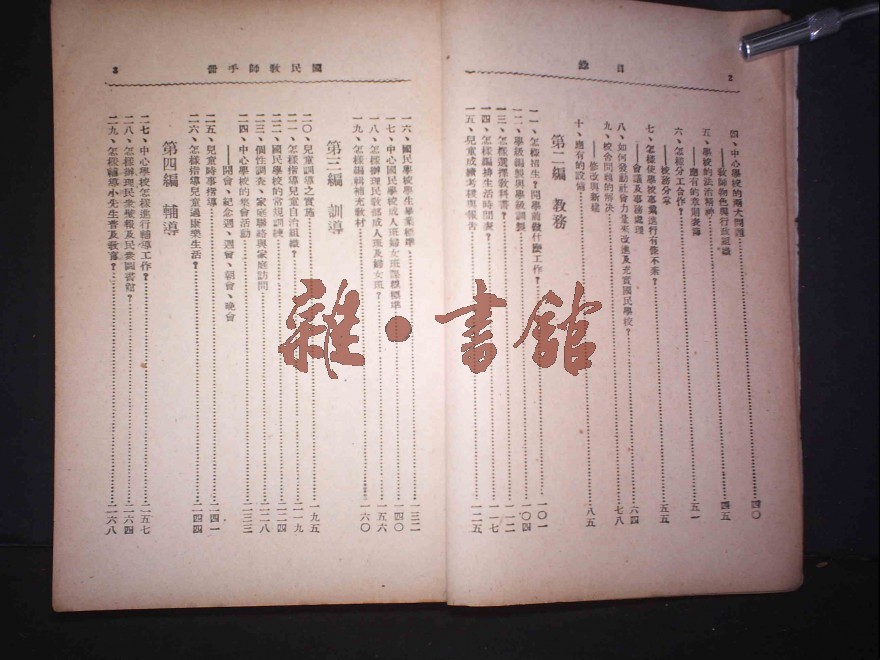 2
目錄
四、中心學校的兩大問題 四〇
——教師物色與行政組織 四五
五、學校的法治精神 五一
——應有的章則表簿
六、怎樣分工合作? 五五
——校務分掌
七、怎樣使學校事業進行有條不紊? 六四
——會議及事務處理
八、如何發動社會力量來改進及充實國民學校? 七八
九、校舍問題的解決
——修改與新建
十、應有的設備 八五
第二編 教務
一一、怎樣招生?開學前做什麼工作? 一〇一
一二、學級編製與學級調製 一〇四
一三、怎樣選擇教科書? 一一二
一四、怎樣編排生活時間表? 一一七
一五、兒童成績考核與報告 一二五
3
國民教師手冊
一六、國民學校學生畢業標準 一三二
一七、中心國民學校成人班婦女班課程標準 一四〇
一八、怎樣辦理民教部成人班及婦女班? 一五六
一九、怎樣編輯補充教材 一六〇
第三編 訓導
二〇、兒童訓導之實施 一九五
二一、怎樣指導兒童自治組織? 二一九
二二、國民學校的常規訓練 二二四
二三、個性調查、家庭聯絡與家庭訪問 二二八
二四、中心學校的集會活動 二三三
——開會、紀念週、週會、朝會、晚會
二五、兒童時事指導 二四一
二六、怎樣指導兒童過康樂生活? 二四四
第四編 輔導
二七、中心學校怎樣進行輔導工作? 二五七
二八、怎樣辦理民衆壁報及民衆圖書館? 二六四
二九、怎樣輔導小先生普及教育? 二六八
雜·書館